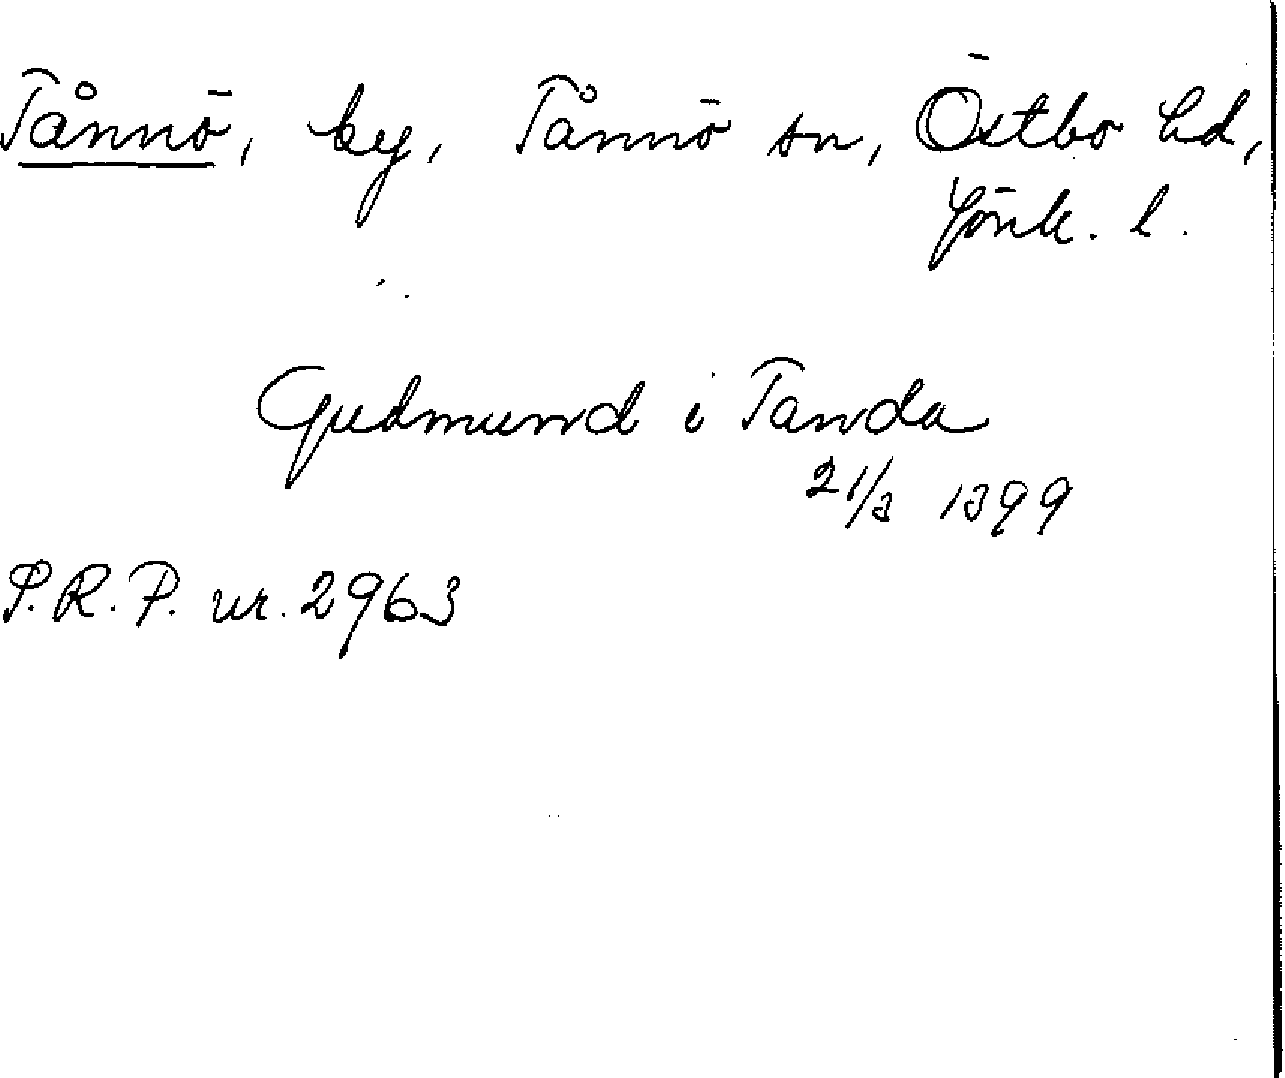 Tånnö, by, Tånnö sn, Östbo hd,
Jönk. l.
Gudmund i Tanda
21/3 1399
S.R.P. nr. 2963